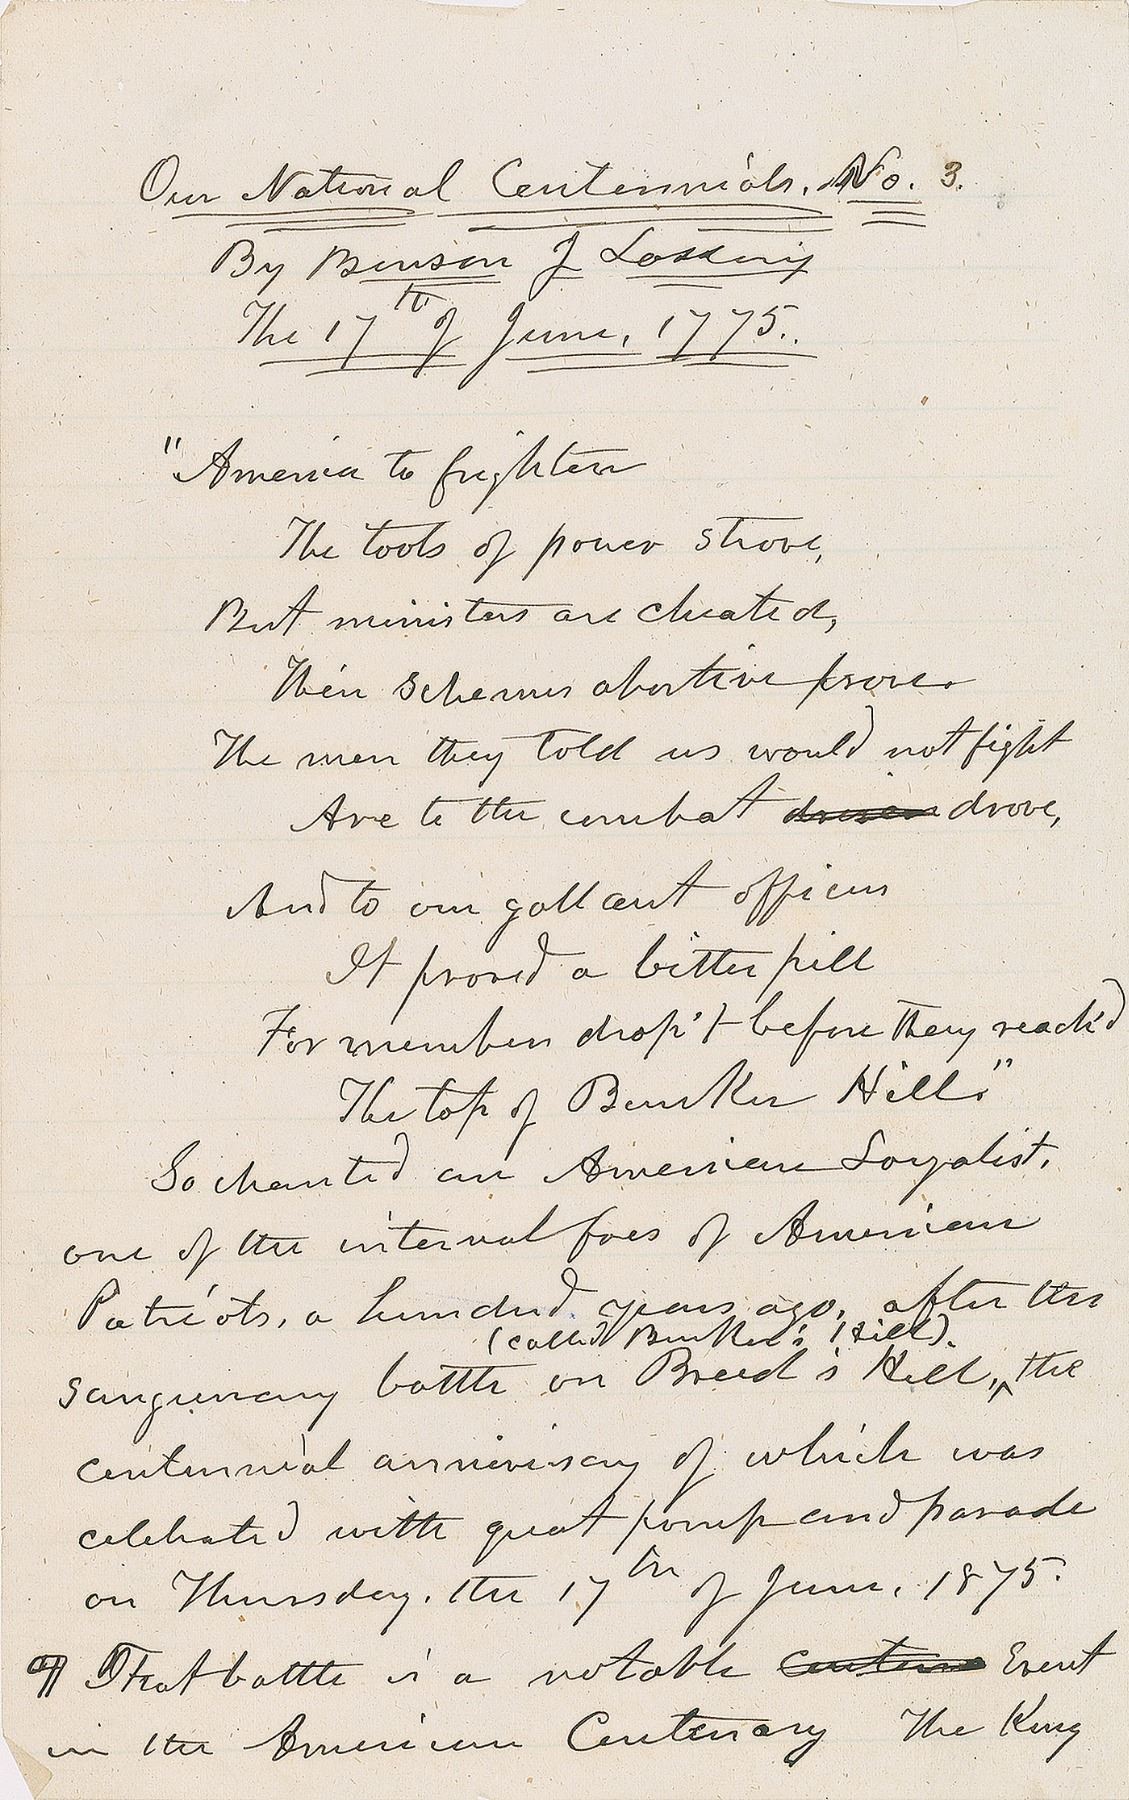 Our National Centennials. No. 3.
By Benson J Lossing
The 17th of June, 1775.
"America to frighten
The tools of power strove,
But ministers are cheated,
Their schemes abortive prove.
The men they told us would not fight
Are to the combat driven drove,
And to our gallant officers
It proved a bitter pill
For numbers drop't before they reach'd
The top of Bunker Hill."
So chanted an American Loyalist,
one of the internal foes of American
Patriots, a hundred years ago, after the
(called Bunker's Hill).
sanguinary battle on Breed's Hill, ^ the
centennial anniversary of which was
celebrated with great pomp and parade
on Thursday, the 17th of June, 1875.
¶ That battle is a notable Event
in the American Centenary The King